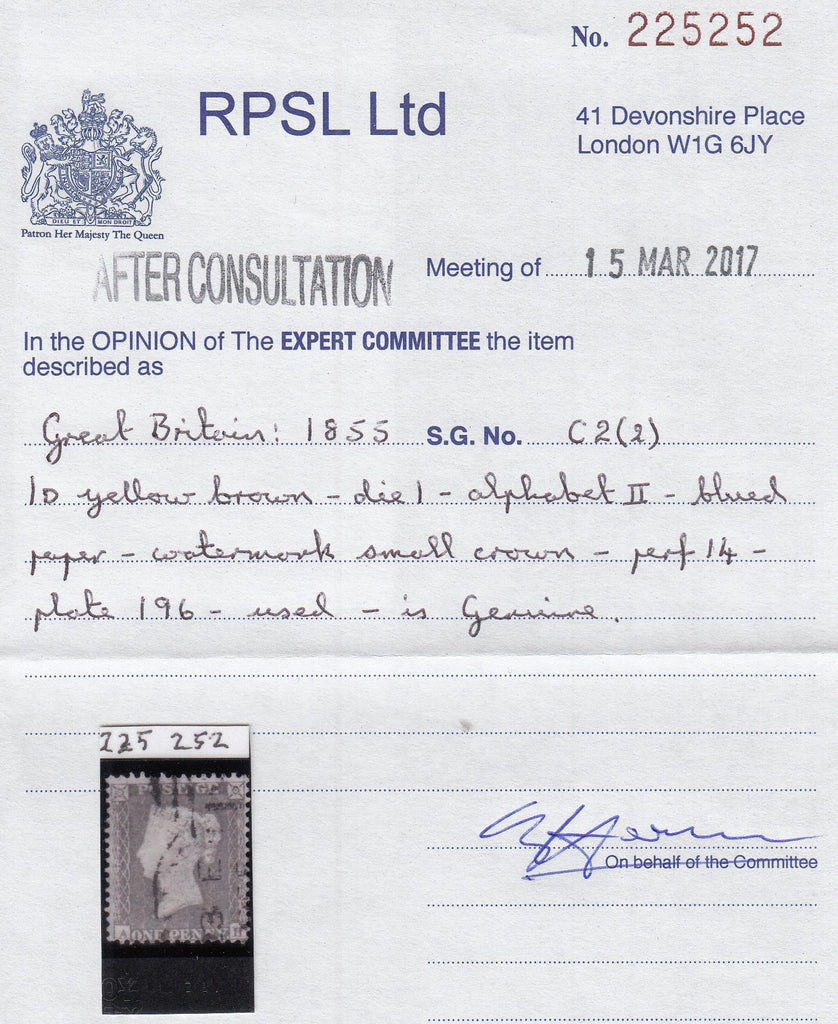 No. 225252
RPSL Ltd
41 Devonshire Place
London W1G 6JY
DIEU ET MON DROIT
Patron Her Majesty The Queen
AFTER CONSULTATION
Meeting of 15 MAR 2017
In the OPINION of The EXPERT COMMITTEE the item
described as
Great Britain: 1855 S.G. No. C2(2)
1D yellow brown - die 1 - alphabet II - blued
paper - watermark small crown - perf 14 -
plate 196 - used - is Genuine.
225 252
POSTAGE
A
ONE PENNY
On behalf of the Committee